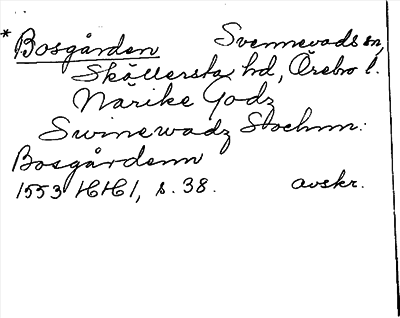 * Bosgården Svennevads sn,
Skyllersta hd, Örebro l.
Närike Godz
Swinewadz Sochnn:
Bosgårdenn
1553 HH 1, s. 38. avskr.